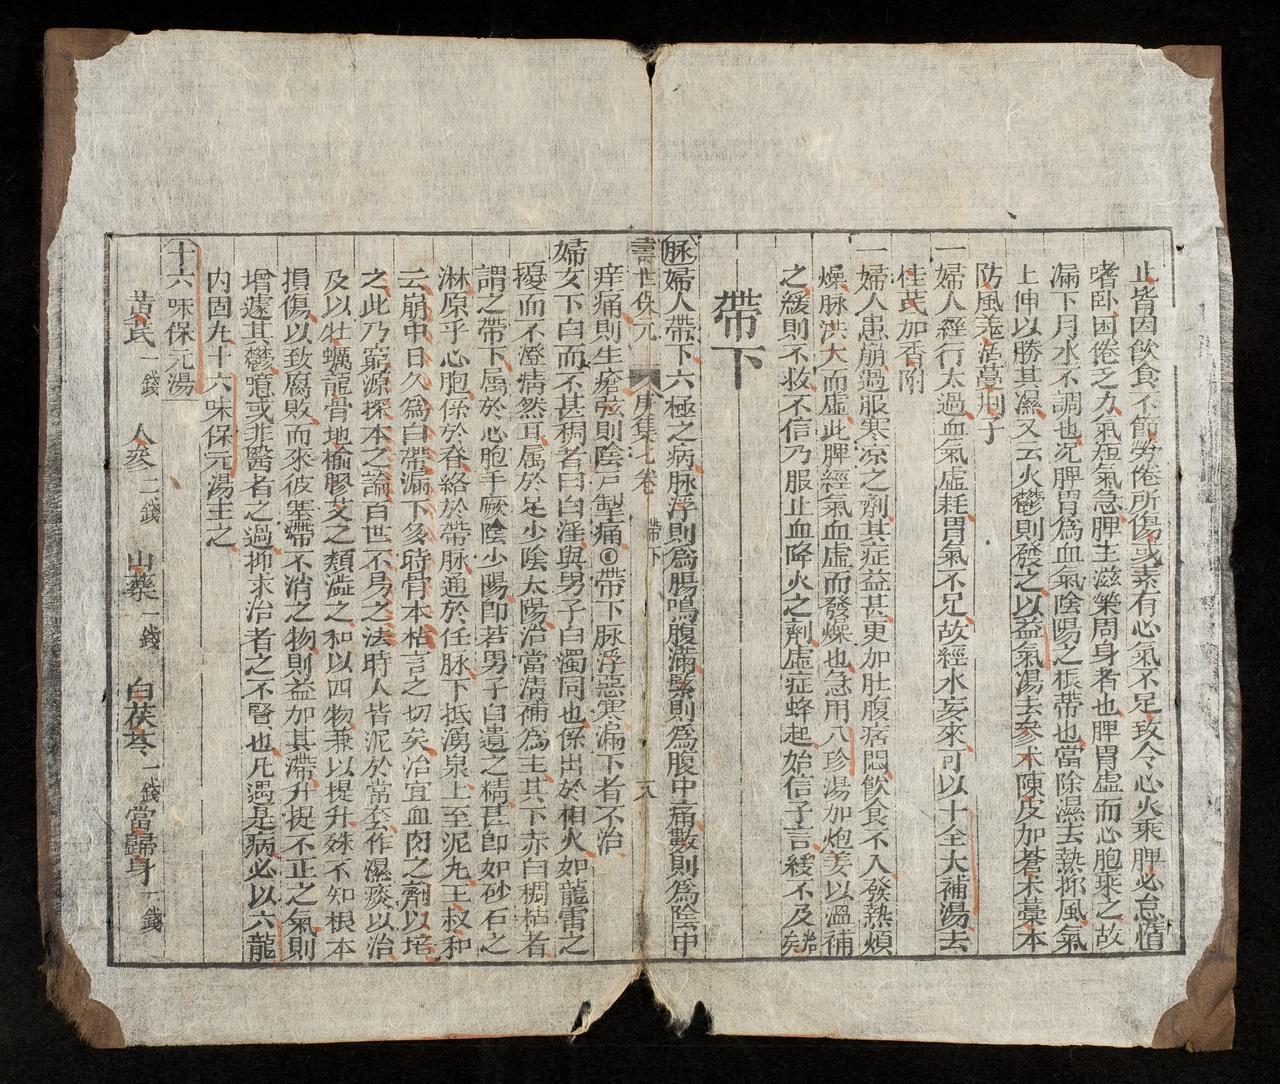 止皆因飲食不節勞倦所傷或素有心氣不足致令心火乘脾必怠惰
嗜卧困倦乏力氣短氣急脾主滋榮周身者也脾胃虛而心胞乘之故
漏下月水不調也况脾胃爲血氣陰陽之根蒂也當除濕去熱抑風氣
上伸以勝其濕又云火鬱則發之以益氣湯去參朮陳皮加蒼朮藁本
防風羗活蔓荆子
一婦人經行太過血氣虛耗胃氣不足故經水妄來可以十全大補湯去
桂芪加香附
一婦人患崩過服寒凉之劑其症益甚更加肚腹痞悶飲食不入發熱煩
燥脉洪大而虛此脾經氣血虛而發燥也急用八珍湯加炮姜以溫補
之緩則不救不信乃服止血降火之劑虛症蜂起始信予言緩不及治矣
帶下
脉婦人帶下六極之病脉浮則爲腸鳴腹滿緊則爲腹中痛數則爲陰中
壽世保元 庚集七卷 帶下 十八
痒痛則生瘡弦則陰戶掣痛帶下脉浮惡寒漏下者不治
婦女下白而不甚稠者曰白淫與男子白濁同也係出於相火如龍雷之
擾而不澄清然耳属於足少陰太陽治當清補爲主其下赤白稠粘者
謂之帶下属於心胞手厥陰少陽卽若男子白遺之精甚卽如砂石之
淋原乎心胞係於脊絡於帶脉通於任脉下抵湧泉上至泥丸王叔和
云崩中日久爲白帶漏下多時骨本枯言之切矣治宜血肉之劑以培
之此乃窮源探本之論百世不易之法時人皆泥於常套作濕痰以治
及以牡蠣龍骨地榆膠艾之類澁之和以四物兼以提升殊不知根本
損傷以致腐敗而來彼塞帶不消之物則益加其滯升提不正之氣則
增遽其鬱噫或非醫者之過抑求治者之不醫也凡遇是病必以六龍
內固丸十六味保元湯主之
十六味保元湯
黃芪一錢 人參二錢 山藥一錢 白茯苓一錢 當歸身一錢